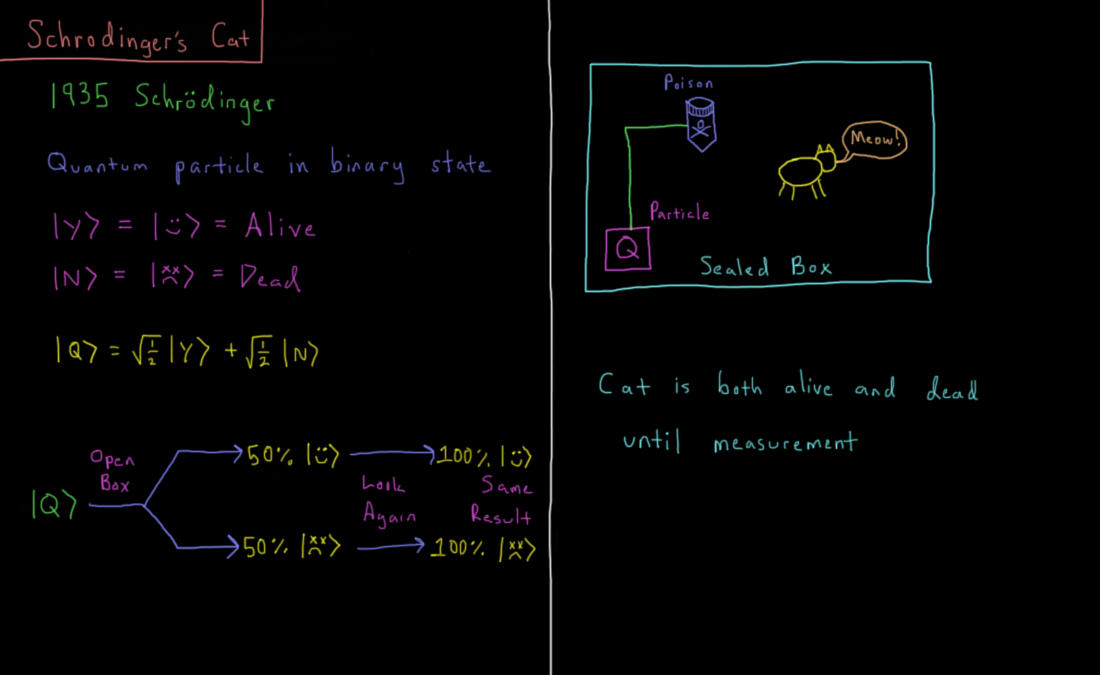 Schrodinger's Cat
1935 Schrödinger
Quantum particle in binary state
|Y⟩ = |:)⟩ = Alive
|N⟩ = |xx⟩ = Dead
|Q⟩ = √½ |Y⟩ + √½ |N⟩
Open
Box
|Q⟩
50% |:)⟩
100% |:)⟩
Look
Again
Same
Result
50% |xx⟩
100% |xx⟩
Poison
Meow!
Particle
Q
Sealed Box
Cat is both alive and dead
until measurement